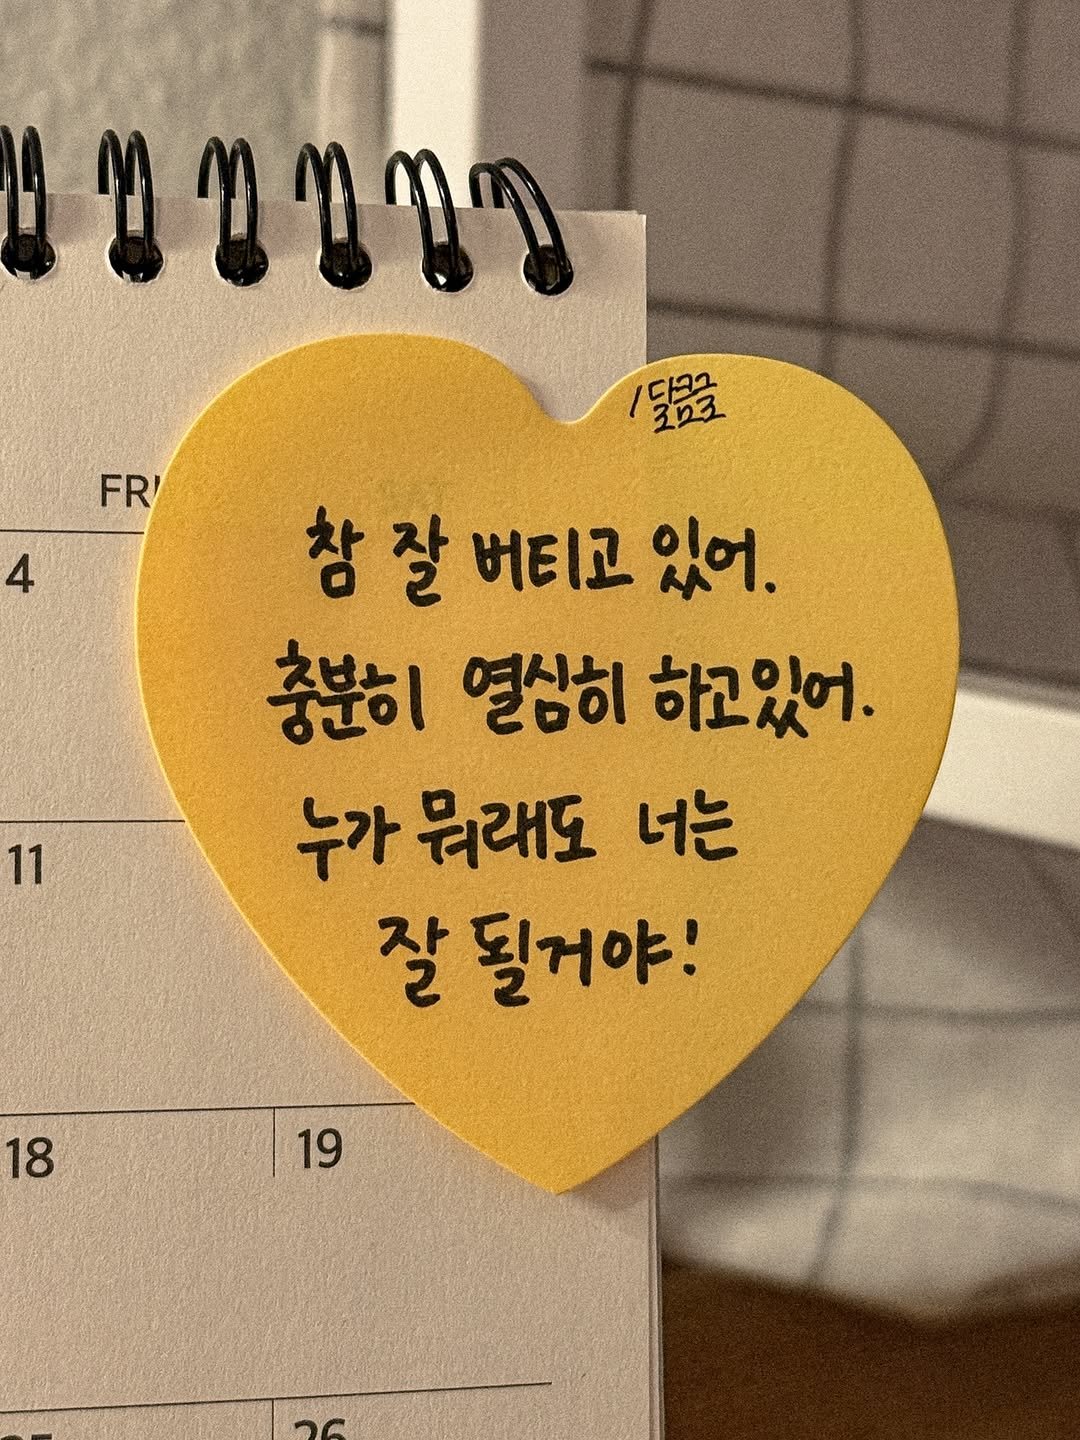 /달콤글
참 잘 버티고 있어.
충분히 열심히 하고있어.
누가 뭐래도 너는
잘 될거야!
FRI
4
11
18 19
26